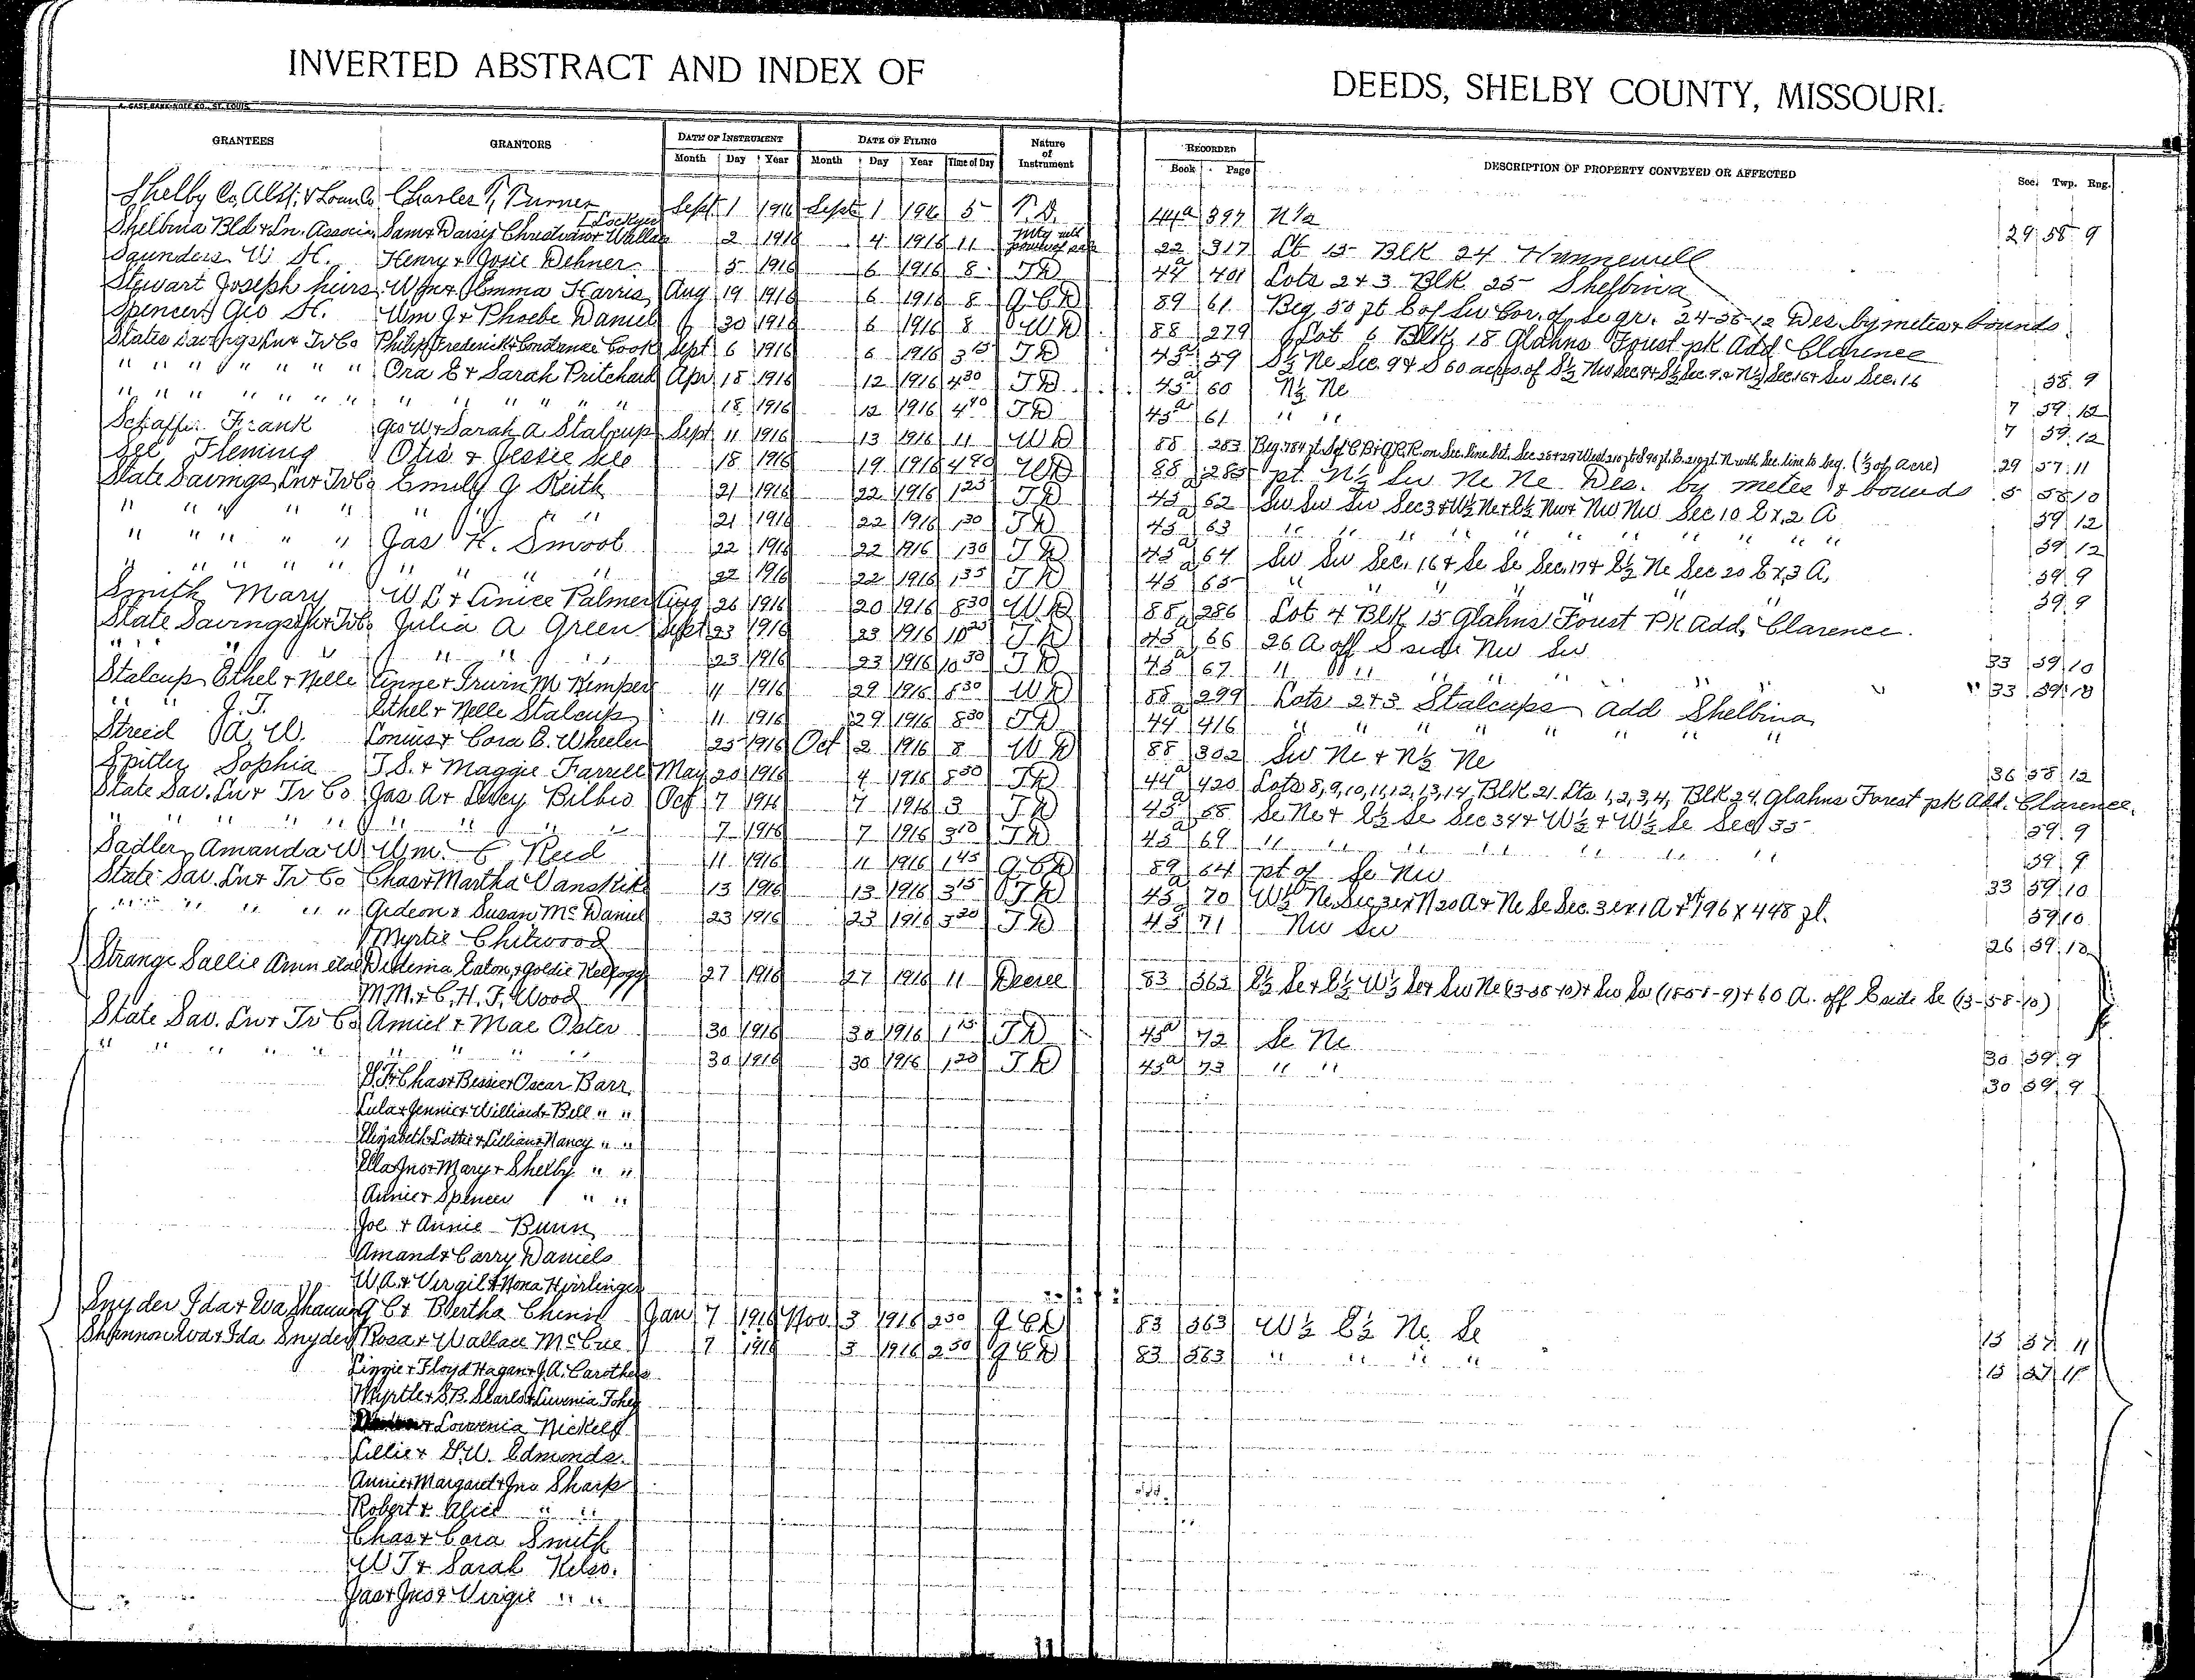 INVERTED ABSTRACT AND INDEX OF DEEDS, SHELBY COUNTY, MISSOURI.
A. GAST BANK NOTE CO., ST. LOUIS.
GRANTEES GRANTORS DATE OF INSTRUMENT DATE OF FILING Nature of Instrument RECORDED DESCRIPTION OF PROPERTY CONVEYED OR AFFECTED Sec. Twp. Rng.
Month Day Year Month Day Year Time of Day Book Page
Shelby Co. Abst. & Loan Co Charles T. Turner Sept 1 1916 Sept 1 1916 5 T.D. 44a 397 N½ 29 58 9
Shelbina Bld & Ln. Associa. Sam & Daisy Christian & Wallace 2 1916 4 1916 11 22 317 Lt 15 Blk 24 Hunnewell
Saunders W H. Henry & Josie Dehner 5 1916 6 1916 8 TD 44a 401 Lots 2 & 3 Blk 25 Shelbina
Stewart Joseph heirs Wm & Emma Harris Aug 19 1916 6 1916 8 QCD 89 61 Beg 50 ft E of Sw Cor. of Se qr. 24-58-12 Des. by metes & bounds
Spencer Geo H. Wm J & Phoebe Daniel 30 1916 6 1916 8 WD 88 279 Lot 6 Blk 18 Glahns Foust pk Add Clarence
States Savings Ln & Tr Co Philip Frederick & Constance Cook Sept 6 1916 6 1916 3 15 TD 45a 59 S½ Ne Sec. 9 & S 60 acres of S½ Nw Sec 9 & S½ Sec. 9 & N½ Sec 16 & Sw Sec. 16 58 9
" " " " " " " Ora E & Sarah Pritchard Apr 18 1916 12 1916 4 30 TD 45a 60 N½ Ne 7 59 12
" " " " " " " " " " " " " 18 1916 12 1916 4 40 TD 45a 61 " " 7 59 12
Schaffer Frank Geo W & Sarah A Stalcup Sept 11 1916 13 1916 11 WD 88 283 Beg. 784 ft. S of C B & Q R.R. on Sec. line bet. Sec 28 & 29 West 210 ft S 90 ft. E. 210 ft. N with Sec. line to beg. (⅓ of Acre) 29 57 11
See Fleming Otis & Jessie See 18 1916 19 1916 4 40 WD 88 285 pt. N½ Sw Ne Ne Des. by metes & bounds 5 58 10
State Savings Ln & Tr Co Emily J Keith 21 1916 22 1916 1 25 TD 45a 62 Sw Sw Sw Sec 3 & W½ Ne & E½ Nw & Nw Nw Sec 10 Ex. 2 A 59 12
" " " " " " " " " 21 1916 22 1916 1 30 TD 45a 63 " " " " " " " " " " 59 12
" " " " " Jas H. Smoot 22 1916 22 1916 1 30 TD 45a 64 Sw Sw Sec. 16 & Se Se Sec. 17 & E½ Ne Sec 20 Ex 3 A. 59 9
" " " " " " " " " 22 1916 22 1916 1 35 TD 45 65 " " " " " 59 9
Smith Mary W L & Anice Palmer Aug 26 1916 20 1916 8 30 WD 88 286 Lot 4 Blk 15 Glahns Foust Pk Add. Clarence.
State Savings Ln & Tr Co Julia A Green Sept 23 1916 23 1916 10 25 TD 45a 66 26 A off S side Nw Sw 33 59 10
" " " " " " 23 1916 23 1916 10 30 TD 45a 67 " " " " " " " 33 59 10
Stalcup Ethel & Nelle Anne & Irwin M Kemper 11 1916 29 1916 8 30 WD 88 299 Lots 2 & 3 Stalcups add Shelbina
" J. T. Ethel & Nelle Stalcup 11 1916 29 1916 8 30 TD 44a 416 " " " " " " "
Streid A. W. Lonius & Cora E. Wheeler 25 1916 Oct 2 1916 8 WD 88 302 Sw Ne & N½ Ne 36 58 12
Spitler Sophia T. S. & Maggie Farrell May 20 1916 4 1916 8 30 TD 44a 420 Lots 8, 9, 10, 11, 12, 13, 14, Blk 21. Lts 1, 2, 3, 4, Blk 24 Glahns Forest pk Add. Clarence.
State Sav. Ln & Tr Co Jas A & Lucy Bilbro Oct 7 1916 7 1916 3 TD 45a 68 Se Ne & E½ Se Sec 34 & W½ & W½ Se Sec 35 59 9
" " " " " " " " " 7 1916 7 1916 3 10 TD 45a 69 " " " " " " " 59 9
Sadler Amanda W Wm. C Reid 11 1916 11 1916 1 45 QCD 89 64 pt of Se Nw 33 59 10
State Sav. Ln & Tr Co Chas & Martha Vanskike 13 1916 13 1916 3 15 TD 45a 70 59 10
" " " " " " Gideon & Susan McDaniel 23 1916 23 1916 3 20 TD 45 71 Nw Sw 26 59 10
Myrtie Chitwood
Strange Sallie Ann etal Didema Eaton, & Goldie Kellogg 27 1916 27 1916 11 Decree 83 563 E½ Se & E½ W½ Se & Sw Ne (3-58-10) & Sw Sw (18-58-9) & 60 A. off E side Se (13-58-10)
M M. & C. H. F. Wood
State Sav. Ln & Tr Co Amiel & Mae Oster 30 1916 30 1916 1 15 TD 45a 72 Se Ne 30 59 9
" " " " " " " " " 30 1916 30 1916 1 20 TD 45a 73 " " 30 59 9
Chas & Bessie & Oscar Barr
Lula & Jennie & Williard & Bell " "
Elizabeth & Lottie & Lillian & Nancy " "
Ella & Jno & Mary & Shelby " "
Annie & Spencer " "
Joe & Annie Bunn
Amand & Carry Daniels
W A. & Virgil & Nona Hirrlinger
Snyder Ida & Eva Shannon G C & Bertha Chinn Jan 7 1916 Nov 3 1916 2 50 QCD 83 563 W½ E½ Ne Se 15 57 11
Shannon Eva & Ida Snyder Rosa & Wallace McCue 7 1916 3 1916 2 50 QCD 83 563 " " " " 15 57 11
Lizzie & Floyd Hagan & J. A. Carothers
Myrtle & S. B. Searls & Luvenia Tohey
& Louvenia Nickell
Lillie & G. W. Edmonds.
Annie & Margaret & Jno Sharp
Robert & Alice " "
Chas & Cora Smith
W T & Sarah Kelso.
Jas & Jno & Virgie " "